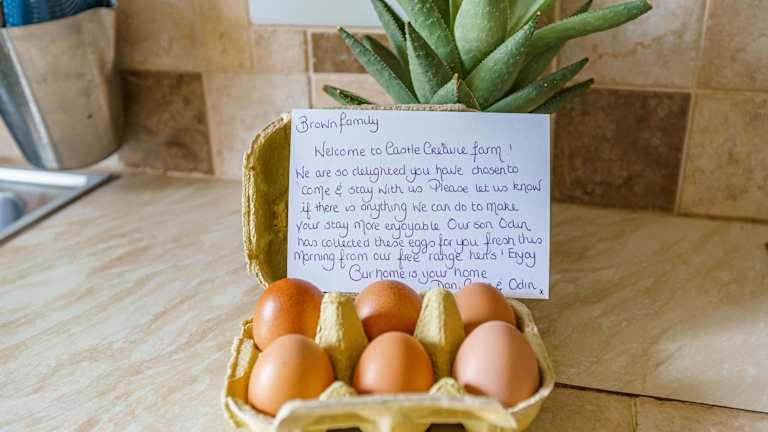 Brown family
Welcome to Castle Creavie farm !
We are so delighted you have chosen to
come & stay with us Please let us know
if there is anything we can do to make
your stay more enjoyable. Our son Odin
has collected these eggs for you fresh this
Morning from our free range hens ! Enjoy
Our home is your home
Dan, & Odin x